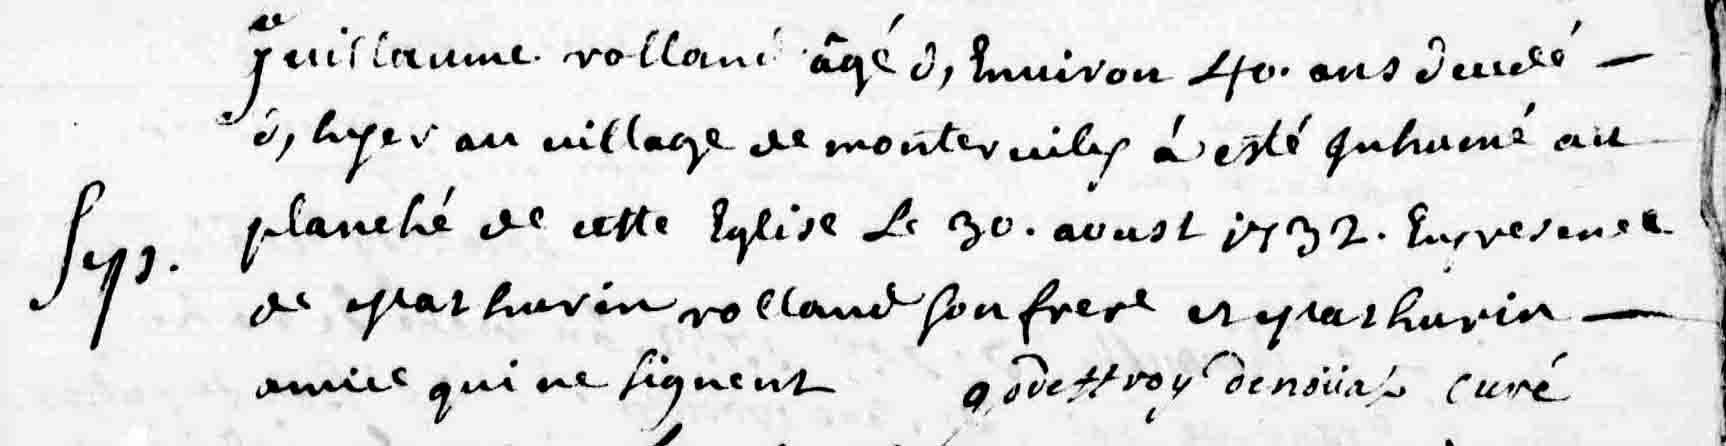 Guillaume rolland âgé d, Environ 40. ans decedé —
d, hyer au village de monterviley á esté Inhumé au
planché de cette Eglise Le 30. aoust 1732. En presence
Sep.
de Mathurin rolland son frere et Mathurin —
amice qui ne signent godeffroy curé